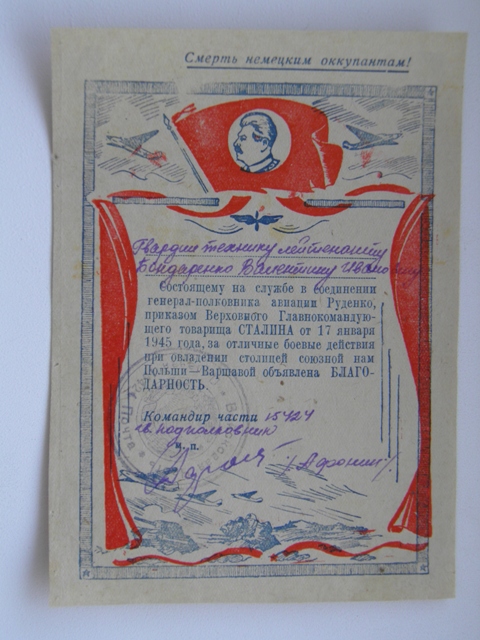 Смерть немецким оккупантам!
Гвардии технику лейтенанту
Бондаренко Валентину Ивановичу
Состоящему на службе в соединении
генерал-полковника авиации Руденко,
приказом Верховного Главнокомандую-
щего товарища СТАЛИНА от 17 января
1945 года, за отличные боевые действия
при овладении столицей союзной нам
Польши—Варшавой объявлена БЛАГО-
ДАРНОСТЬ.
Командир части 15424
гв. подполковник
м. п.
/Афонин/
Почта